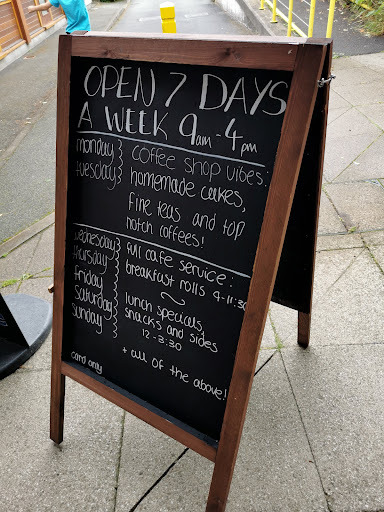 OPEN 7 DAYS
A WEEK 9am - 4pm
monday
tuesday
coffee shop vibes:
homemade cakes,
fine teas and top
notch coffees!
wednesday
thursday
friday
saturday
sunday
full cafe service:
breakfast rolls 9-11:30
~
lunch specials,
snacks and sides
12-3:30
+ all of the above!
card only